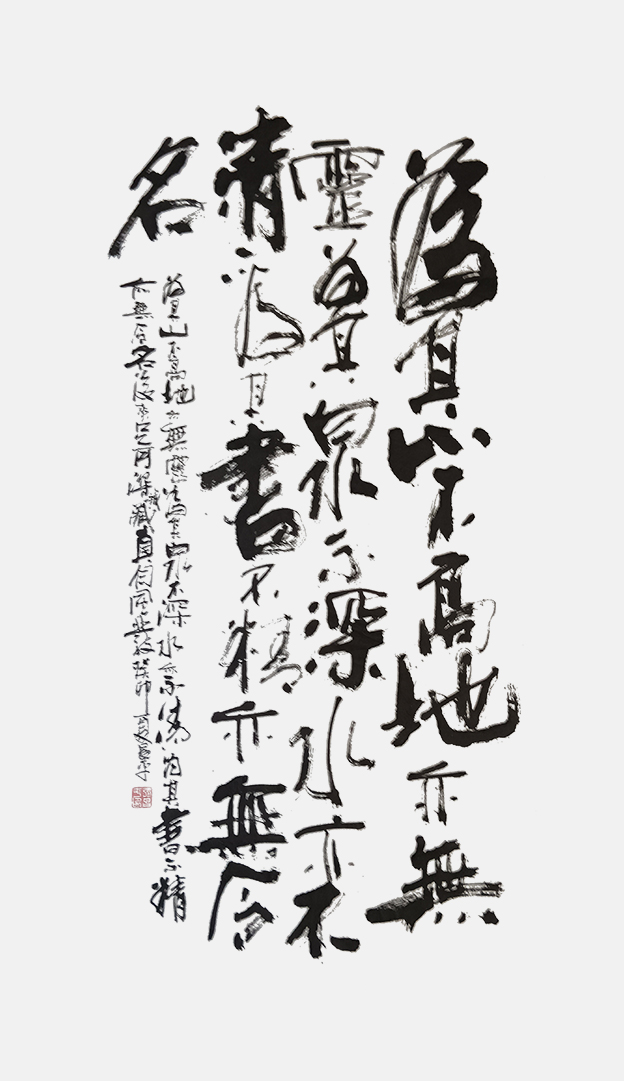 為其山不高地亦無
靈為其泉不深水亦不
清為其書不精亦無令
名
為其山不高地亦無靈為其泉不深水亦不清為其書不精
亦無令名 癸卯夏